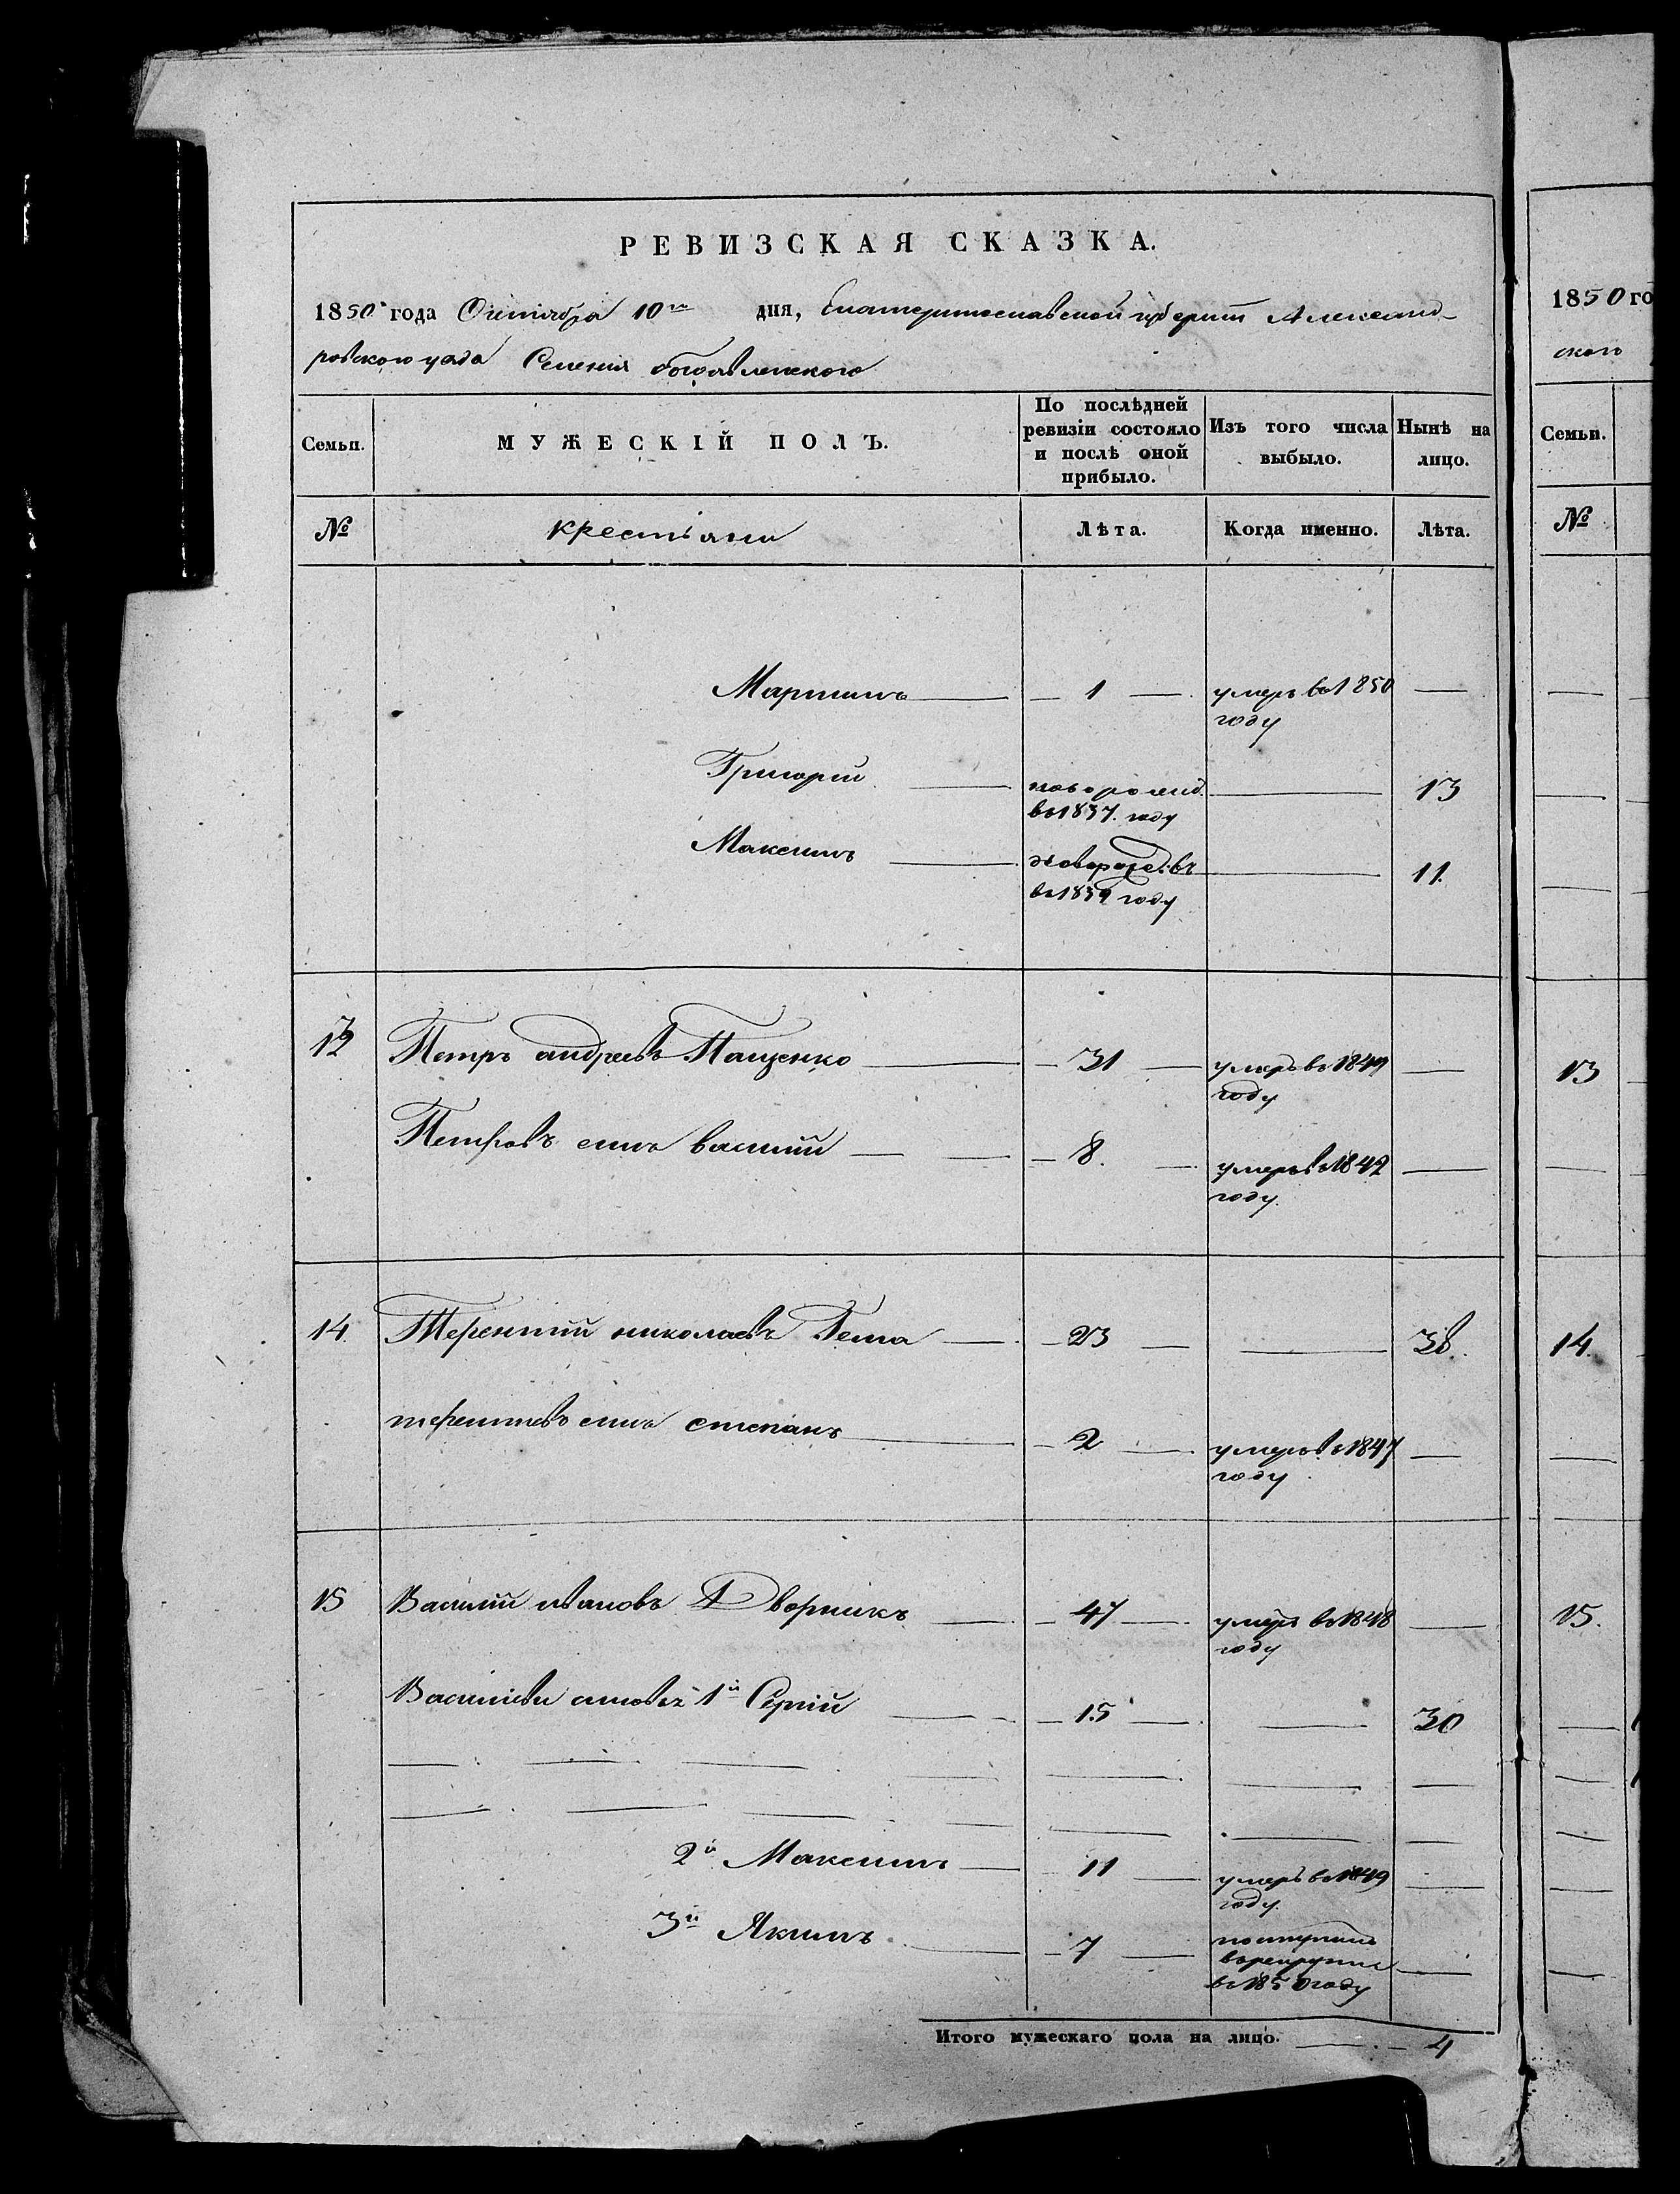 РЕВИЗСКАЯ СКАЗКА.
1850 года Октября 10го дня, Екатеринославской губернии Александ-
ровского уезда Селения богоявленского
Семьи.
МУЖЕСКІЙ ПОЛЪ.
По послѣдней ревизіи состояло и послѣ оной прибыло.
Изъ того числа выбыло.
Нынѣ на лицо.
№ крестьяни Лѣта. Когда именно. Лѣта.
Мартинъ — 1 — умеръ въ 1850 —
году
Григорій — новорожд. — 13
въ 1837. году
Максимъ — новорожд: въ — 11.
въ 1839 году
12 Петръ андреевъ Пащенко — 31 — умеръ въ 1849 —
году
Петровъ сынъ василий — 8. — умеръ въ 1842 —
году.
14. Терентий николаевъ Гема — 23 — 38.
терентиевъ сынъ степанъ — 2 — умеръ въ 1847 —
году
15 Василий ивановъ Дворникъ — 47 — умеръ въ 1848 —
году
Василиеви сыновья 1й Сергій — 15 — 30
2й Максимъ — 11 — умеръ въ 1849 —
году.
3й Якимъ — 7 — поступилъ
в рекруты —
въ 1850 году
Итого мужескаго пола на лицо. — 4
1850 го
ского
Семьи.
№
13
14.
15.